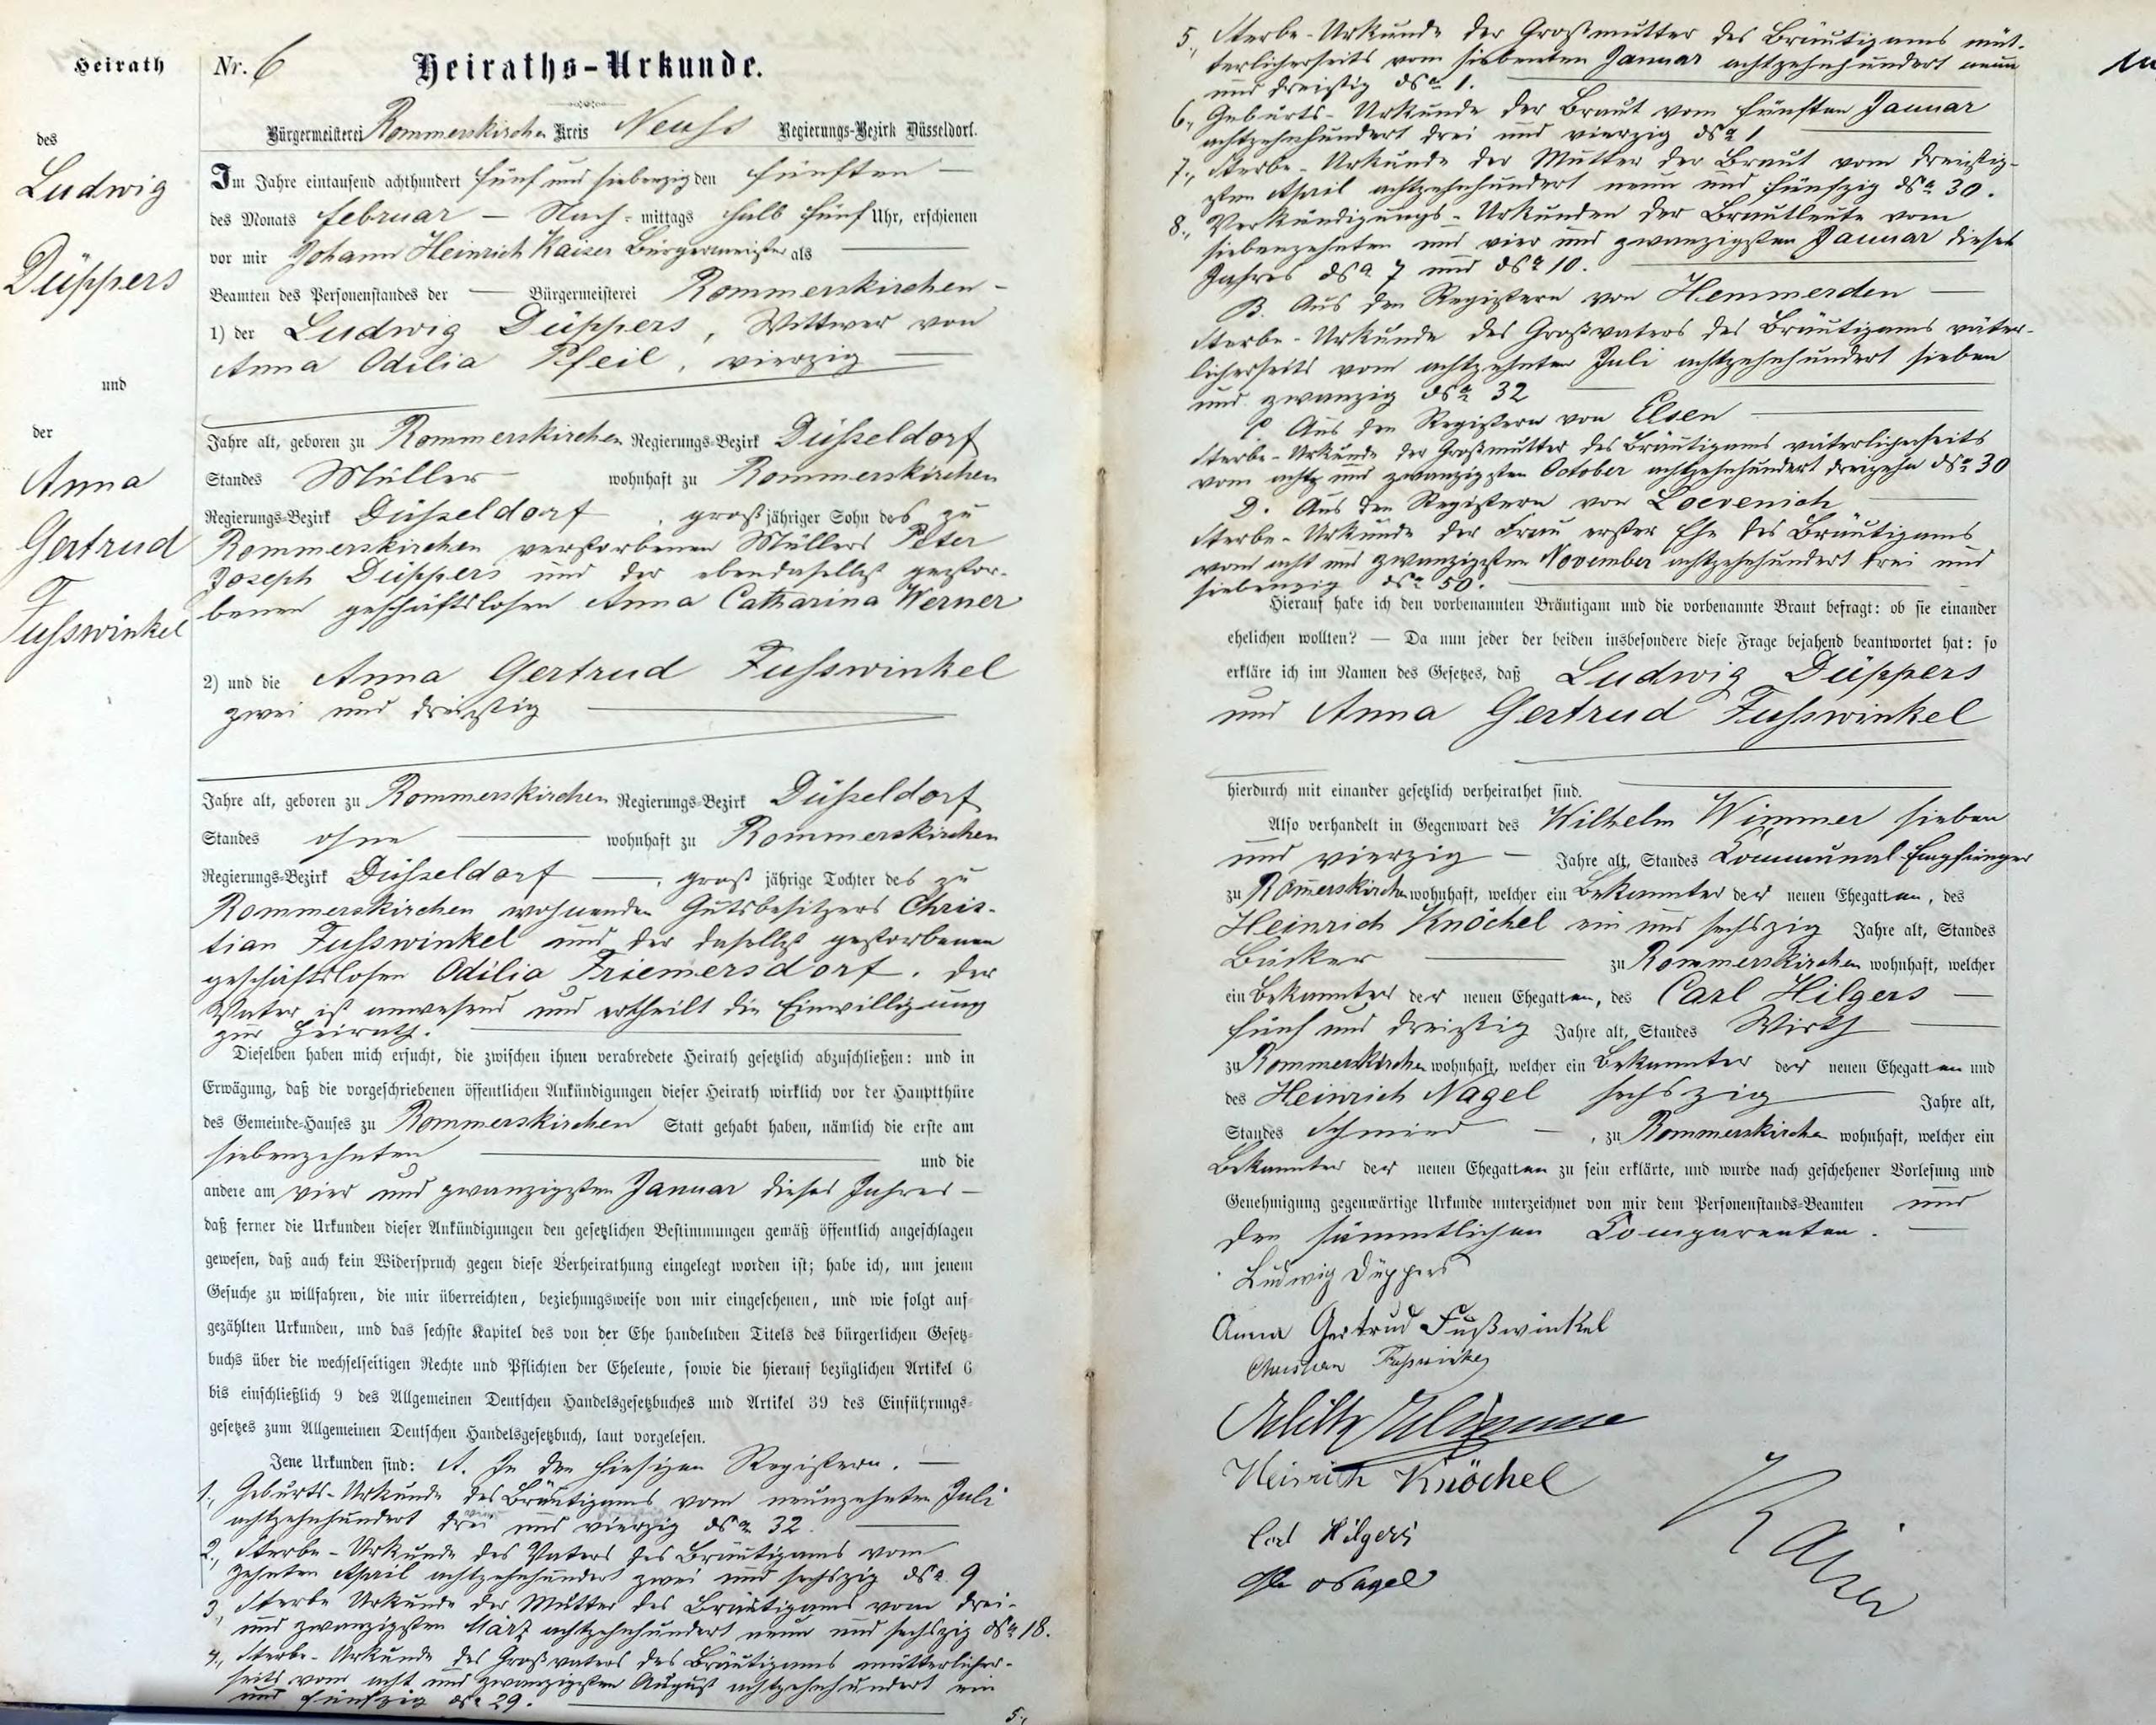 Heirath
des
Ludwig
Düppers
und
der
Anna
Gertrud
Fusswinkel
Nr. 6
Heiraths-Urkunde.
Bürgermeisterei Rommerskirchen Kreis Neuss Regierungs-Bezirk Düsseldorf.
Im Jahre eintausend achthundert fünf und siebenzig den fünften —
des Monats Februar — Nach-mittags halb fünf Uhr, erschienen
vor mir Johann Heinrich Kaiser Bürgermeister als
Beamten des Personenstandes der — Bürgermeisterei Rommerskirchen -
1) der Ludwig Düppers, Wittwer von
Anna Odilia Pfeil, vierzig —
Jahre alt, geboren zu Rommerskirchen Regierungs-Bezirk Düsseldorf
Standes Müller wohnhaft zu Rommerskirchen
Regierungs-Bezirk Düsseldorf, großjähriger Sohn des zu
Rommerskirchen verstorbenen Müllers Peter
Joseph Düppers und der ebendaselbst gestor-
benen geschäftslosen Anna Catharina Werner
2) und die Anna Gertrud Fusswinkel
zwei und dreißig —
Jahre alt, geboren zu Rommerskirchen Regierungs-Bezirk Düsseldorf
Standes ohne — wohnhaft zu Rommerskirchen
Regierungs-Bezirk Düsseldorf —, groß jährige Tochter des zu
Rommerskirchen wohnenden Gutsbesitzers Chris-
tian Fusswinkel und der daselbst gestorbenen
geschäftslosen Odilia Friemersdorf. Der
Vater ist anwesend und ertheilt die Einwilligung
zur Heirath. —
Dieselben haben mich ersucht, die zwischen ihnen verabredete Heirath gesetzlich abzuschließen: und in
Erwägung, daß die vorgeschriebenen öffentlichen Ankündigungen dieser Heirath wirklich vor der Hauptthüre
des Gemeinde-Hauses zu Rommerskirchen Statt gehabt haben, nämlich die erste am
siebenzehnten — und die
andere am vier und zwanzigsten Januar dieses Jahres —
daß ferner die Urkunden dieser Ankündigungen den gesetzlichen Bestimmungen gemäß öffentlich angeschlagen
gewesen, daß auch kein Widerspruch gegen diese Verheirathung eingelegt worden ist; habe ich, um jenem
Gesuche zu willfahren, die mir überreichten, beziehungsweise von mir eingesehenen, und wie folgt auf-
gezählten Urkunden, und das sechste Kapitel des von der Ehe handelnden Titels des bürgerlichen Gesetz-
buchs über die wechselseitigen Rechte und Pflichten der Eheleute, sowie die hierauf bezüglichen Artikel 6
bis einschließlich 9 des Allgemeinen Deutschen Handelsgesetzbuches und Artikel 39 des Einführungs-
gesetzes zum Allgemeinen Deutschen Handelsgesetzbuch, laut vorgelesen.
Jene Urkunden sind: A. In den hiesigen Registern. —
1., Geburts-Urkunde des Bräutigams vom neunzehnten Juli
achtzehnhundert und vierzig 32.
2., Sterbe-Urkunde des Vaters des Bräutigams vom
zehnten April achtzehnhundert zwei und sechszig 9
3., Sterbe Urkunde der Mutter des Bräutigams vom drei-
und zwanzigsten März achtzehnhundert neun und sechszig 18.
4., Sterbe-Urkunde des Großvaters des Bräutigams mütterlicher-
seits vom acht und zwanzigsten August achtzehnhundert ein
und fünfzig 29.
5.,
5., Sterbe-Urkunde der Großmutter des Bräutigams müt-
terlicherseits vom siebenten Januar achtzehnhundert neun
und dreißig 1.
6., Geburts-Urkunde der Braut vom fünften Januar
achtzehnhundert drei und vierzig 1
7., Sterbe-Urkunde der Mutter der Braut vom dreißig-
sten April achtzehnhundert neun und fünfzig 30.
8., Verkündigungs-Urkunden der Brautleute vom
siebenzehnten und vier und zwanzigsten Januar dieses
Jahres 7 und 10.
B. Aus den Registern von Hemmerden —
Sterbe-Urkunde des Großvaters des Bräutigams väter-
licherseits vom achtzehnten Juli achtzehnhundert sieben
und zwanzig 32
C. Aus den Registern von Elsen
Sterbe-Urkunde der Großmutter des Bräutigams väterlicherseits
vom acht und zwanzigsten October achtzehnhundert dreizehn 30
D. Aus den Registern von Loevenich
Sterbe-Urkunde der Frau erster Ehe des Bräutigams
vom acht und zwanzigsten November achtzehnhundert drei und
siebenzig 50.
Hierauf habe ich den vorbenannten Bräutigam und die vorbenannte Braut befragt: ob sie einander
ehelichen wollten? — Da nun jeder der beiden insbesondere diese Frage bejahend beantwortet hat: so
erkläre ich im Namen des Gesetzes, daß Ludwig Düppers
und Anna Gertrud Fusswinkel
hierdurch mit einander gesetzlich verheirathet sind.
Also verhandelt in Gegenwart des Wilhelm Wimmer sieben
und vierzig — Jahre alt, Standes Communal-Empfänger
zu Rommerskirchen wohnhaft, welcher ein Bekannter der neuen Ehegatten, des
Heinrich Knöchel ein und sechszig Jahre alt, Standes
Bäcker — zu Rommerskirchen wohnhaft, welcher
ein Bekannter der neuen Ehegatten, des Carl Hilgers —
fünf und dreißig Jahre alt, Standes Wirth —
zu Rommerskirchen wohnhaft, welcher ein Bekannter der neuen Ehegatten und
des Heinrich Nagel sechszig — Jahre alt,
Standes Schmied —, zu Rommerskirchen wohnhaft, welcher ein
Bekannter der neuen Ehegatten zu sein erklärte, und wurde nach geschehener Vorlesung und
Genehmigung gegenwärtige Urkunde unterzeichnet von mir dem Personenstands-Beamten und
den sämmtlichen Comparenten. —
Ludwig Düppers
Anna Gertrud Fußwinkel
Christian Fußwinkel
Wilh Wimmer
Heinrich Knöchel
Carl Hilgers
Nagel
Kaiser